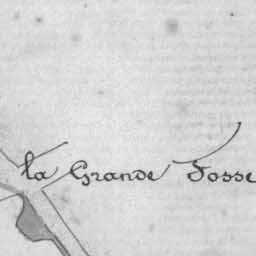 la Grande Fosse